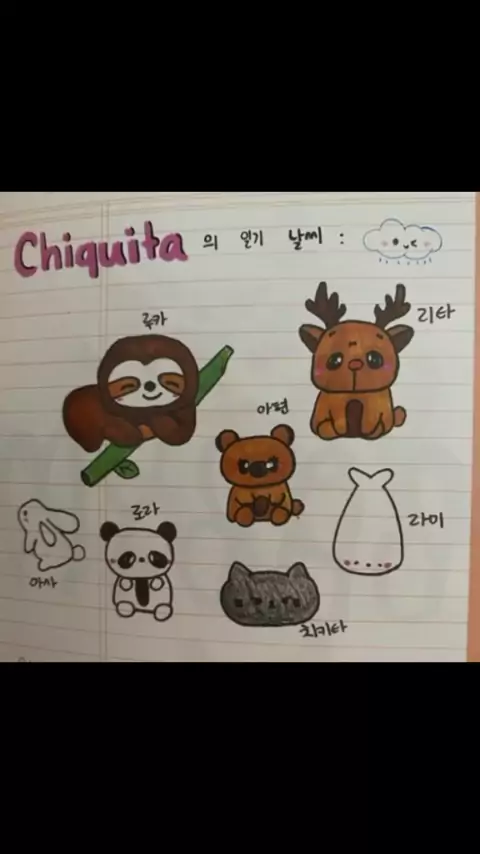 Chiquita 의 일기 날씨 :
루카
리타
아현
로라
라미
아사
치키타